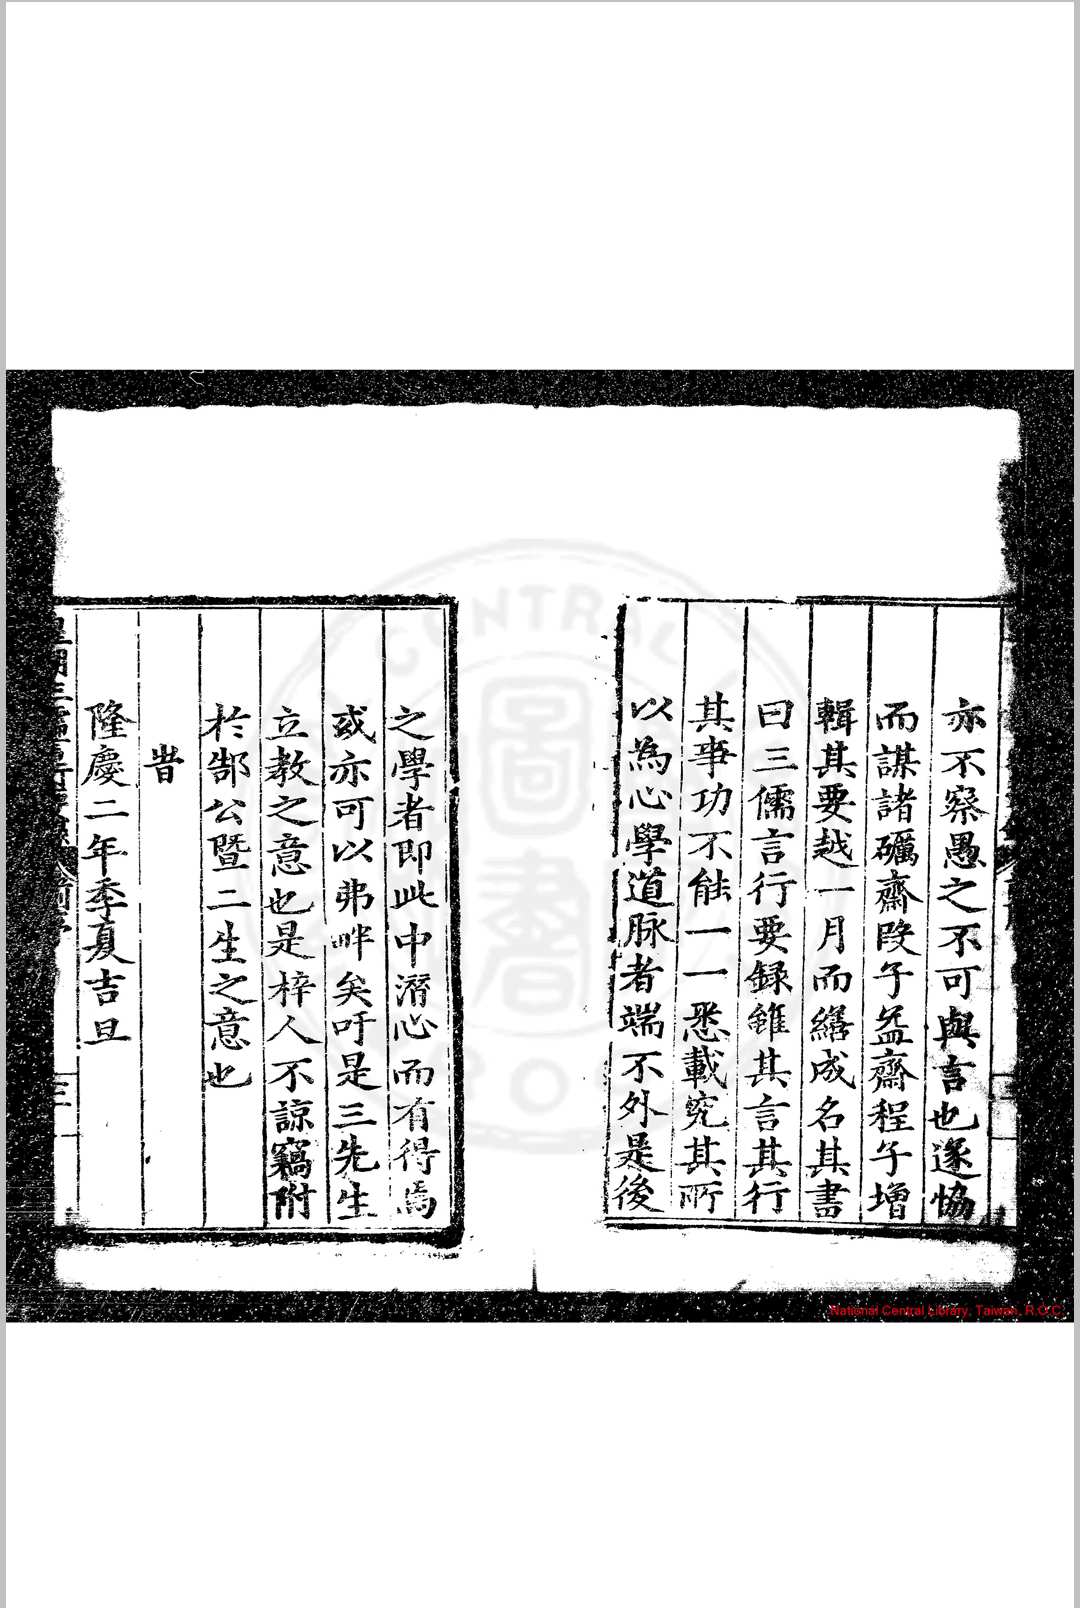 亦不察愚之不可與言也遂恊
而謀諸礪齋段子益齋程子增
輯其要越一月而繕成名其書
曰三儒言行要録雖其言其行
其事功不能一一悉載究其所
以為心學道脉者端不外是後
之學者即此中潛心而有得焉
或亦可以弗畔矣吁是三先生
立教之意也是梓人不諒竊附
於郜公暨二生之意也
旹
隆慶二年季夏吉旦
三
CENTRAL
圖書
National Central Library, Taiwan, R.O.C.